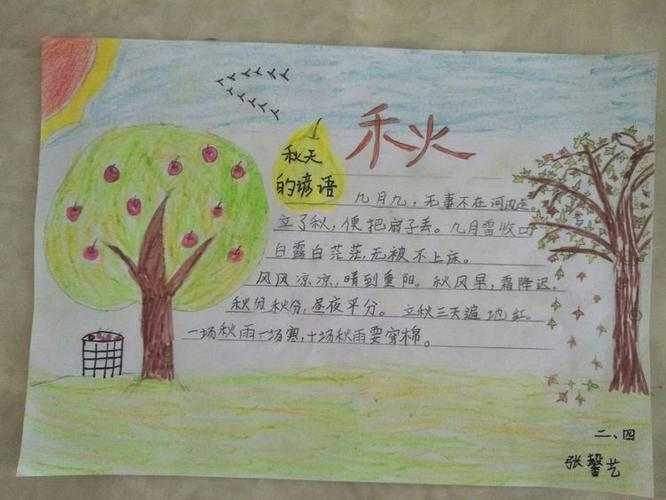 秋
秋天
的谚语
九月九，无事不在河边走。
立了秋，便把扇子丢。九月雷收
白露白茫茫，无被不上床。
风风凉凉，晴到重阳。秋风早，霜降迟。
秋分秋分，昼夜平分。立秋三天遍地红。
一场秋雨一场寒，十场秋雨要穿棉。
二、四
张馨艺